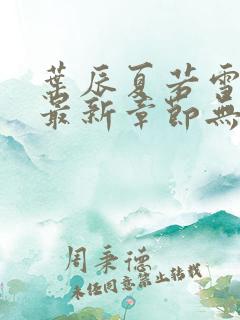 葉辰夏若雪
最新章節無
周秉德
未经同意禁止转载